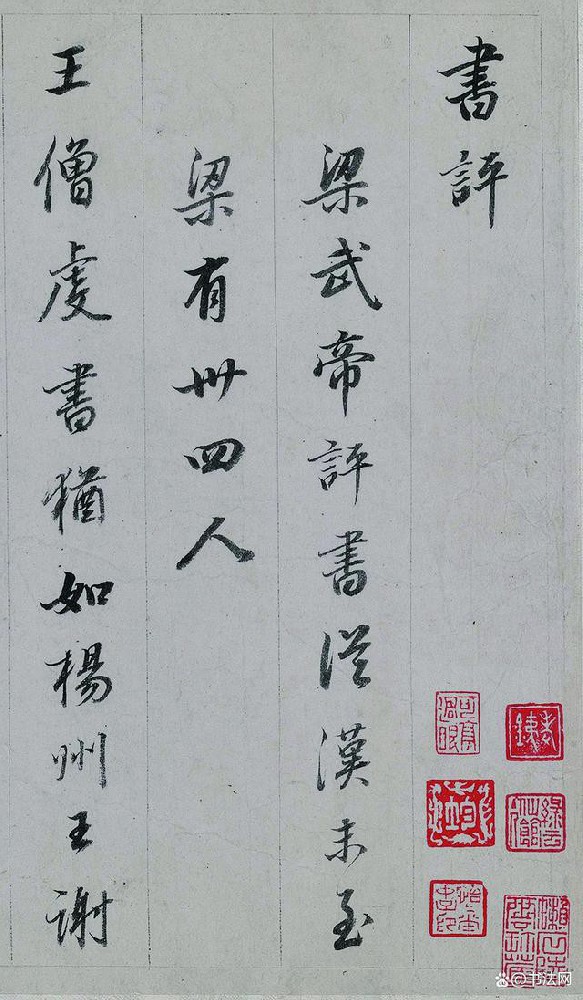 書評
梁武帝評書從漢末至
梁有卅四人
王僧虔書猶如楊州王謝
书法网